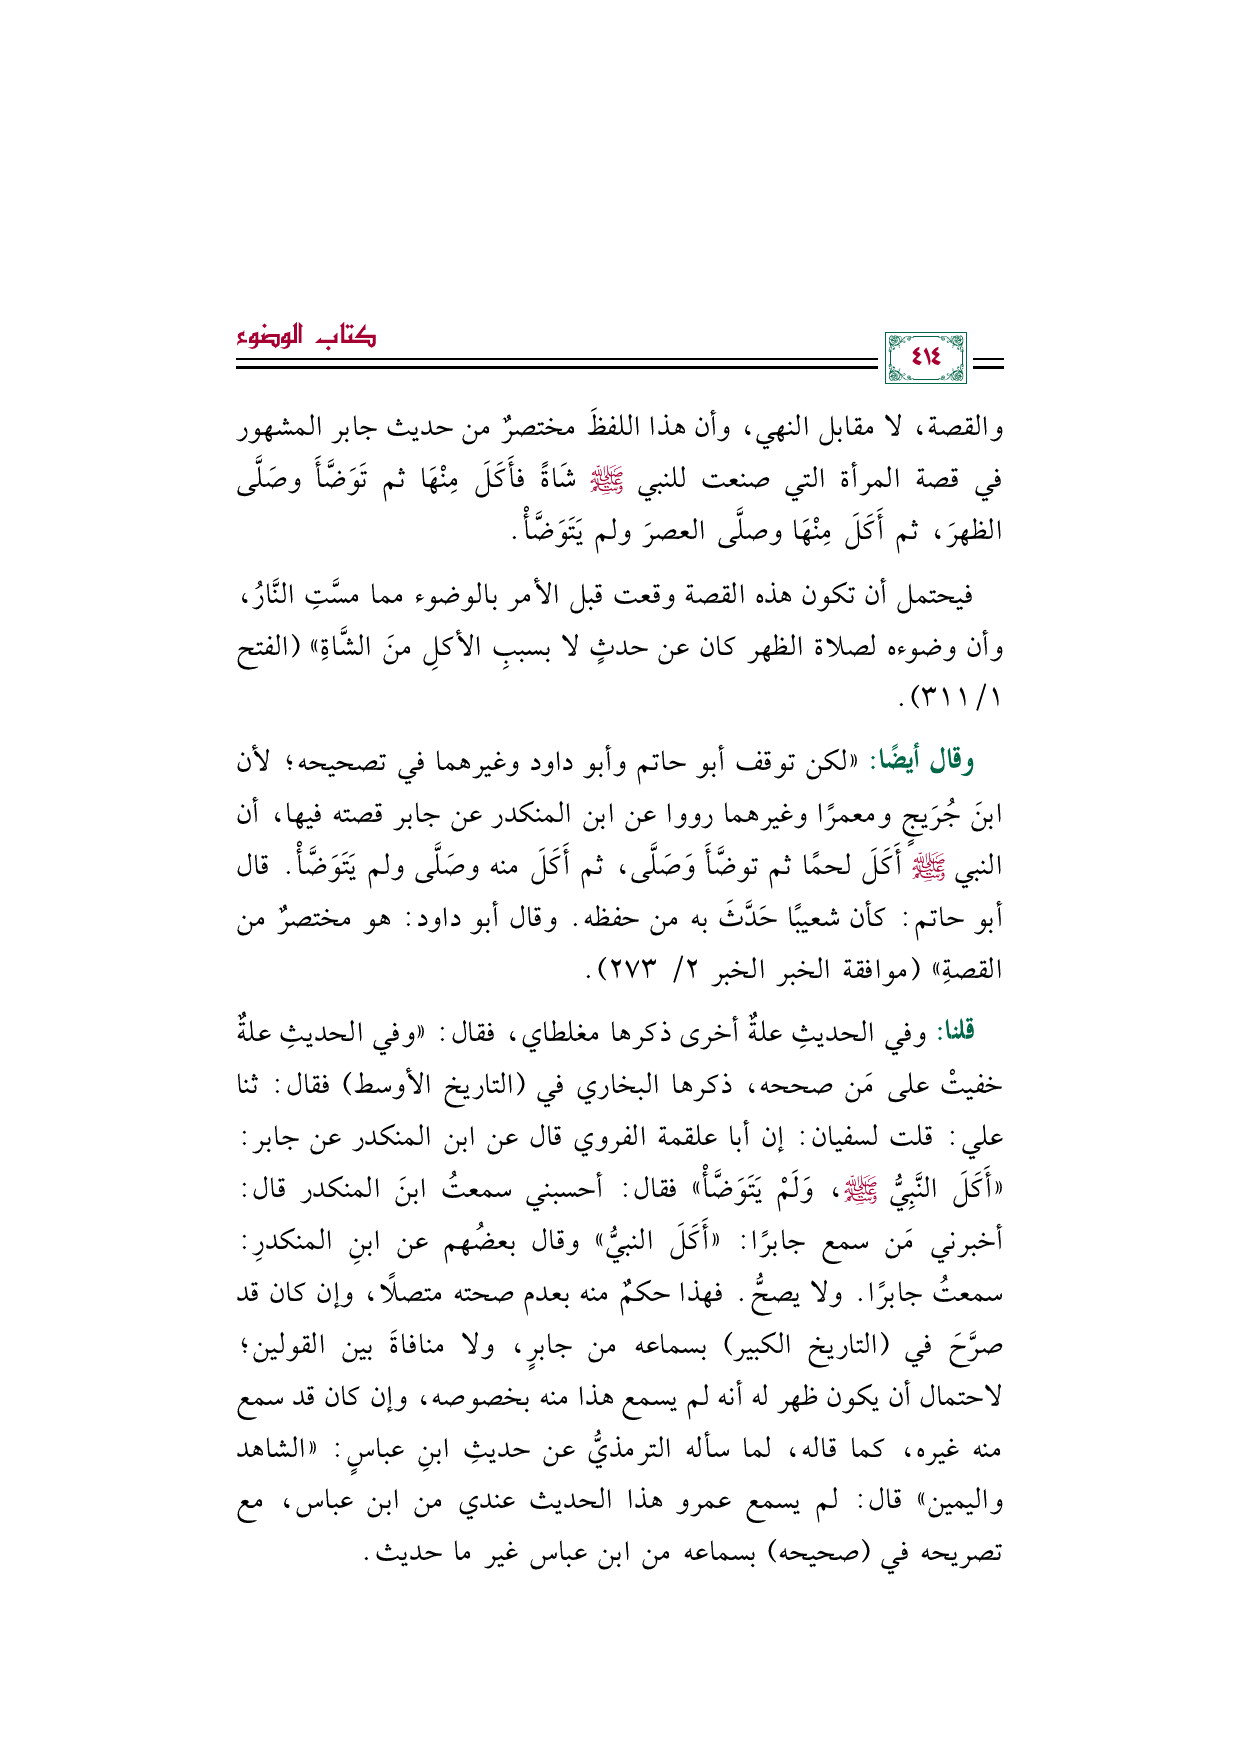 كتاب الوضوء
٤١٤
والقصة، لا مقابل النهي، وأن هذا اللفظَ مختصرٌ من حديث جابر المشهور
في قصة المرأة التي صنعت للنبي ﷺ شَاةً فأَكَلَ مِنْهَا ثم تَوَضَّأَ وصَلَّى
الظهرَ، ثم أَكَلَ مِنْهَا وصلَّى العصرَ ولم يَتَوَضَّأْ.
فيحتمل أن تكون هذه القصة وقعت قبل الأمر بالوضوء مما مسَّتِ النَّارُ،
وأن وضوءه لصلاة الظهر كان عن حدثٍ لا بسببِ الأكلِ منَ الشَّاةِ» (الفتح
١/ ٣١١).
وقال أيضًا: «لكن توقف أبو حاتم وأبو داود وغيرهما في تصحيحه؛ لأن
ابنَ جُرَيجٍ ومعمرًا وغيرهما رووا عن ابن المنكدر عن جابر قصته فيها، أن
النبي ﷺ أَكَلَ لحمًا ثم توضَّأَ وَصَلَّى، ثم أَكَلَ منه وصَلَّى ولم يَتَوَضَّأْ. قال
أبو حاتم: كأن شعيبًا حَدَّثَ به من حفظه. وقال أبو داود: هو مختصرٌ من
القصةِ» (موافقة الخبر الخبر ٢/ ٢٧٣).
قلنا: وفي الحديثِ علةٌ أخرى ذكرها مغلطاي، فقال: «وفي الحديثِ علةٌ
خفيتْ على مَن صححه، ذكرها البخاري في (التاريخ الأوسط) فقال: ثنا
علي: قلت لسفيان: إن أبا علقمة الفروي قال عن ابن المنكدر عن جابر:
«أَكَلَ النَّبِيُّ ﷺ، وَلَمْ يَتَوَضَّأْ» فقال: أحسبني سمعتُ ابنَ المنكدر قال:
أخبرني مَن سمع جابرًا: «أَكَلَ النبيُّ» وقال بعضُهم عن ابنِ المنكدرِ:
سمعتُ جابرًا. ولا يصحُّ. فهذا حكمٌ منه بعدم صحته متصلًا، وإن كان قد
صرَّحَ في (التاريخ الكبير) بسماعه من جابرٍ، ولا منافاةَ بين القولين؛
لاحتمال أن يكون ظهر له أنه لم يسمع هذا منه بخصوصه، وإن كان قد سمع
منه غيره، كما قاله، لما سأله الترمذيُّ عن حديثِ ابنِ عباسٍ: «الشاهد
واليمين» قال: لم يسمع عمرو هذا الحديث عندي من ابن عباس، مع
تصريحه في (صحيحه) بسماعه من ابن عباس غير ما حديث.